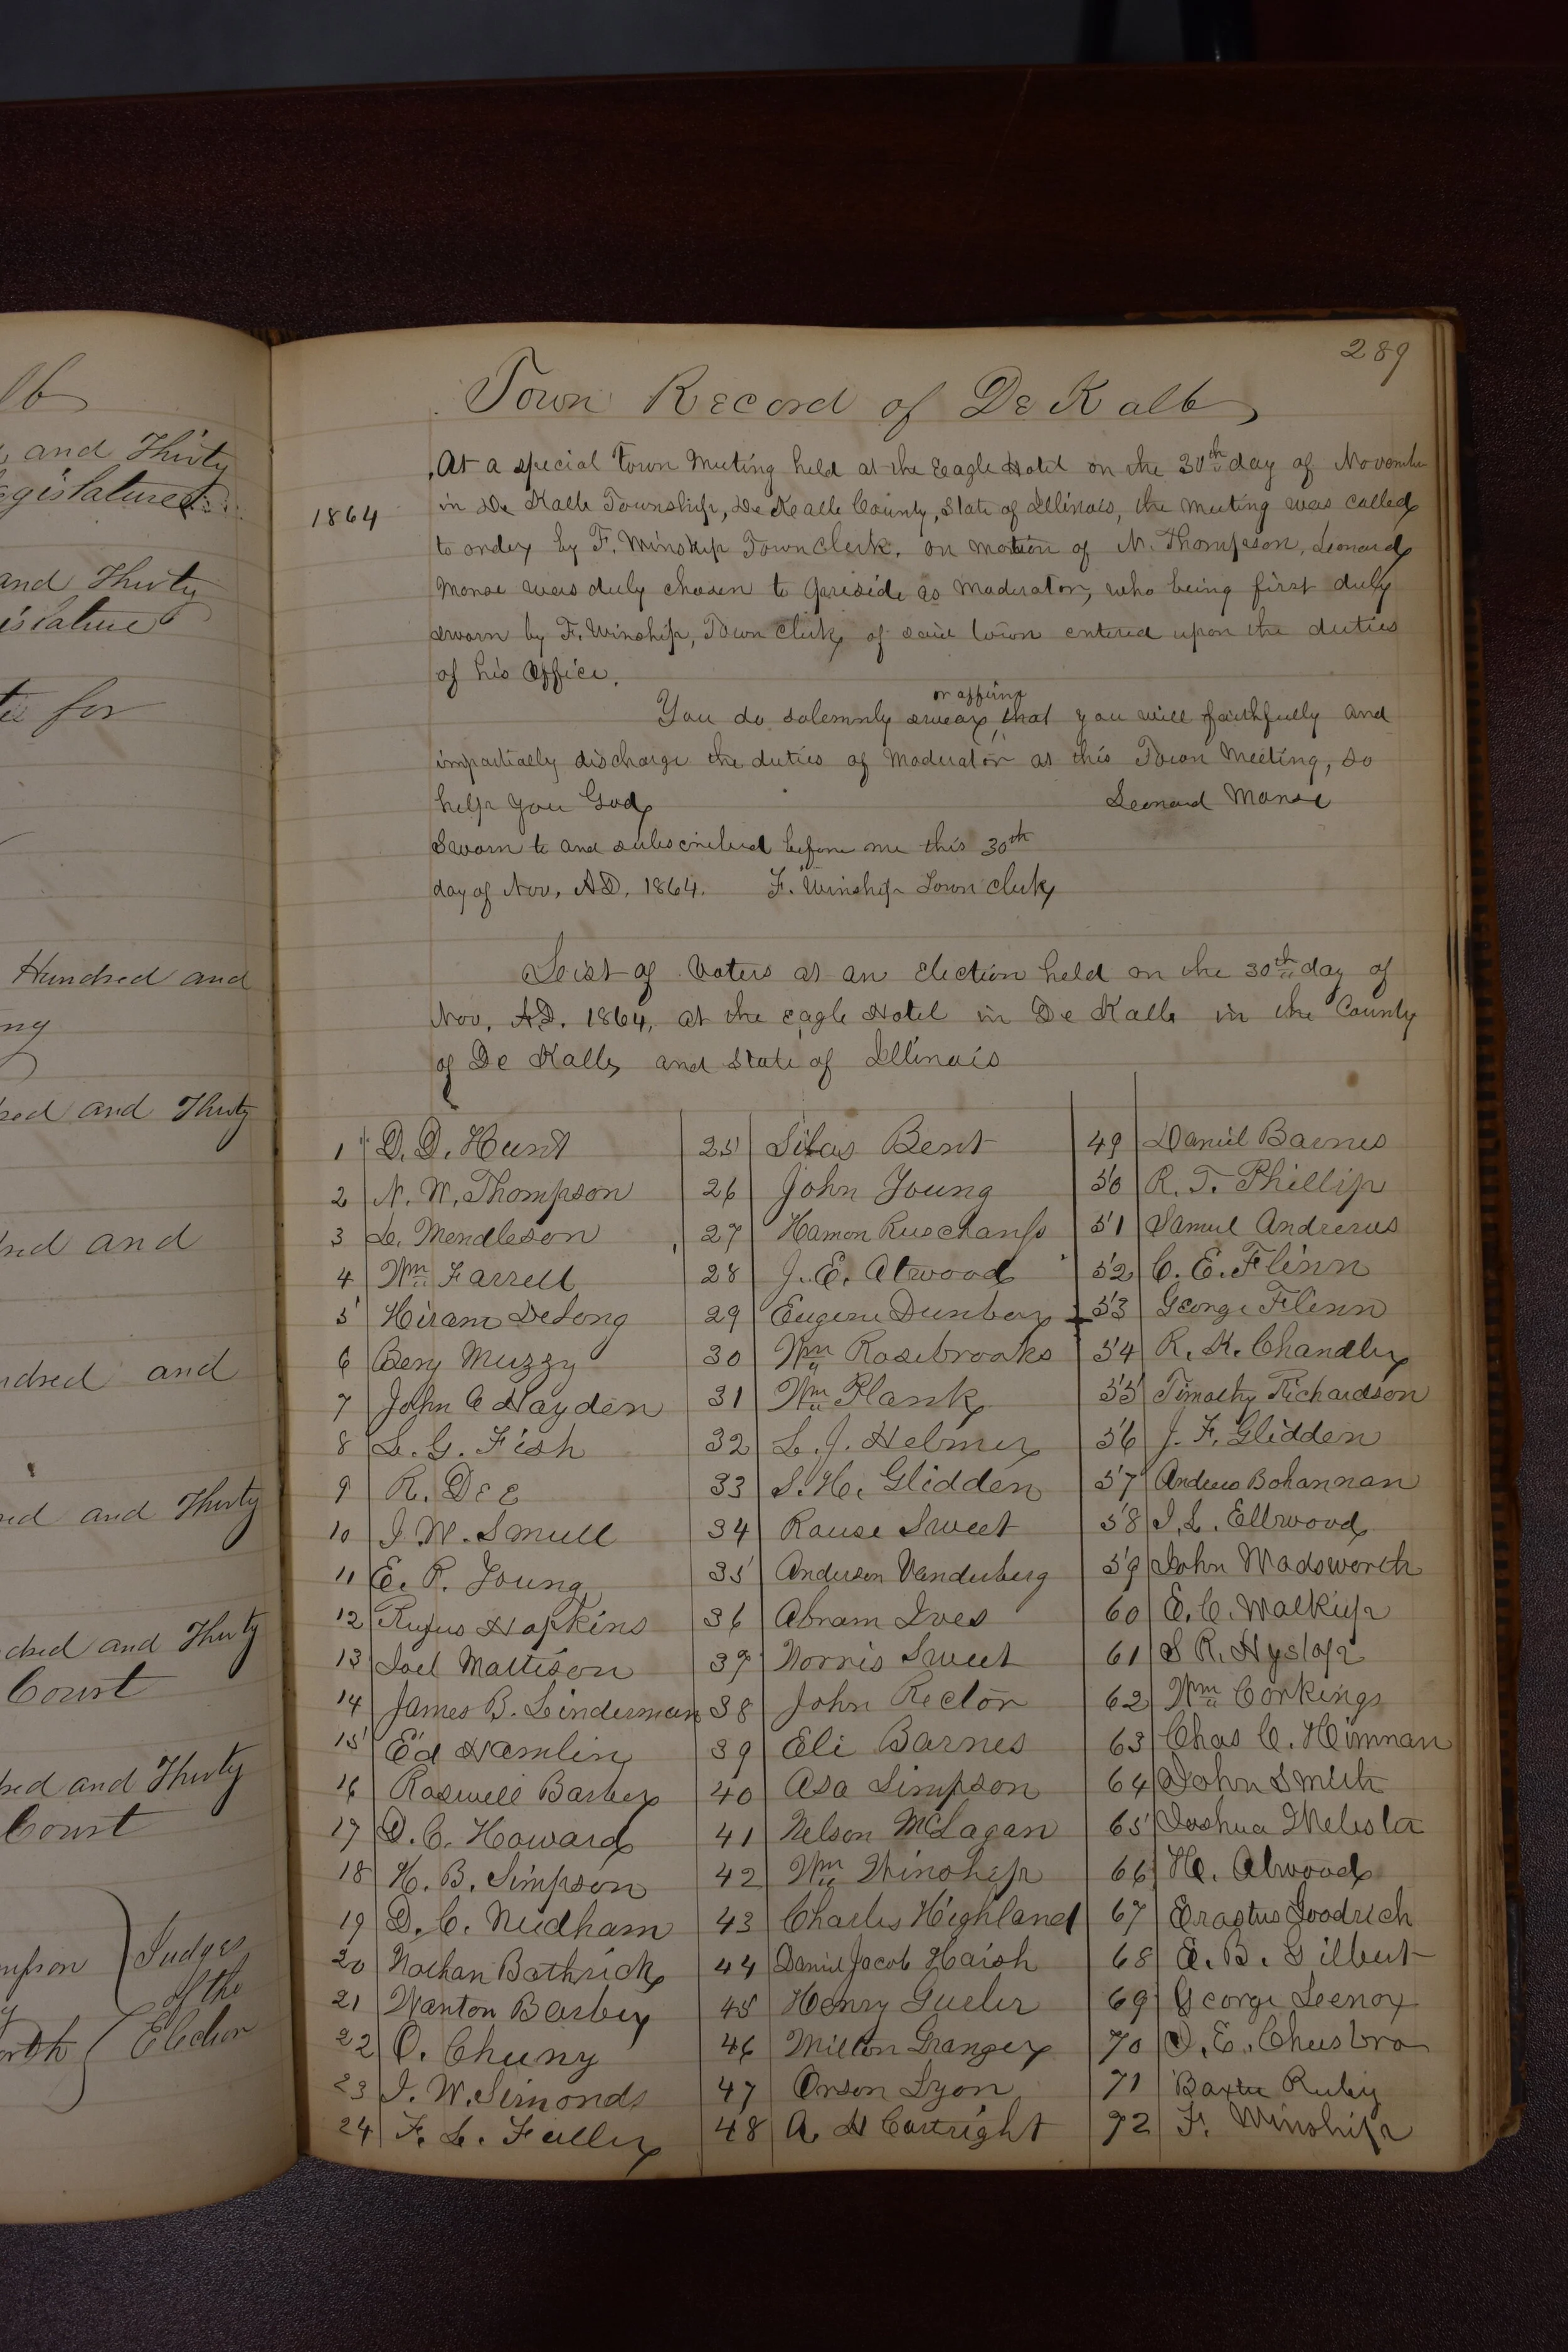 lb
and Thirty
egislature
and Thirty
islature
for
Hundred and
ng
red and Thirty
dred and
ndred and
red and Thirty
dred and Thirty
Court
red and Thirty
Court
mpson
Judges
of the
Election
orth
289
Town Record of De Kalb
1864
At a special Town Meeting held at the Eagle Hotel on the 30th day of November
in De Kalb Township, De Kalb County, State of Illinois, the meeting was called
to order by F. Winship Town Clerk. on motion of N. Thompson, Leonard
Morse was duly chosen to preside as Moderator, who being first duly
sworn by F. Winship, Town Clerk of said town entered upon the duties
of his office.
or affirm
You do solemnly swear, that you will faithfully and
impartially discharge the duties of Moderator at this Town Meeting, so
help you God
Leonard Morse
Sworn to and subscribed before me this 30th
day of Nov, A.D. 1864. F. Winship Town Clerk
List of Voters at an Election held on the 30th day of
Nov. A.D. 1864, at the Eagle Hotel in De Kalb in the County
of De Kalb, and State of Illinois
1 D. D. Hunt
2 N. W. Thompson
3 L. Mendleson
4 Wm Farrell
5 Hiram DeLong
6 Benj Muzzy
7 John C Hayden
8 L. G. Fish
9 R. Dee
10 J. W. Smull
11 E. P. Young
12 Rufus Hopkins
13 Joel Mattison
14 James B. Linderman
15 Ed Hamlin
16 Roswell Barber
17 D. C. Howard
18 H. B. Simpson
19 D. C. Needham
20 Nathan Bathrick
21 Wanton Barber
22 O. Cheeny
23 J. W. Simonds
24 F. L. Fuller
25 Silas Bent
26 John Young
27 Hamon
28 J. E. Atwood
29 Eugene Dunbar
30 Wm Rosebrooks
31 Wm Plank
32 L. J. Helmer
33 S. H. Glidden
34 Rause Sweet
35 Anderson Vanderberg
36 Abram Ives
37 Norris Sweet
38 John Rector
39 Eli Barnes
40 Asa Simpson
41 Nelson McLagan
42 Wm Winship
43 Charles Highland
44 Daniel Jacob Haish
45 Henry Gueler
46 Milton Granger
47 Orson Lyon
48 A H Cartright
49 Daniel Barnes
50 R. T. Phillip
51 Samuel Andrews
52 C. E. Flinn
53 George Flinn
54 R. K. Chandler
55 Timothy Richardson
56 J. F. Glidden
57 Andrew Bohannan
58 I. L. Ellwood
59 John Wadsworth
60 E. C. Walkup
61 S R. Hyslop
62 Wm Corkings
63 Chas C. Himman
64 John Smith
65 Joshua Webster
66 H. Atwood
67 Erastus Goodrich
68 E. B. Gilbert
69 George Leenox
70 D. E. Cheesbro
71 Baxter Ruby
72 F. Winship